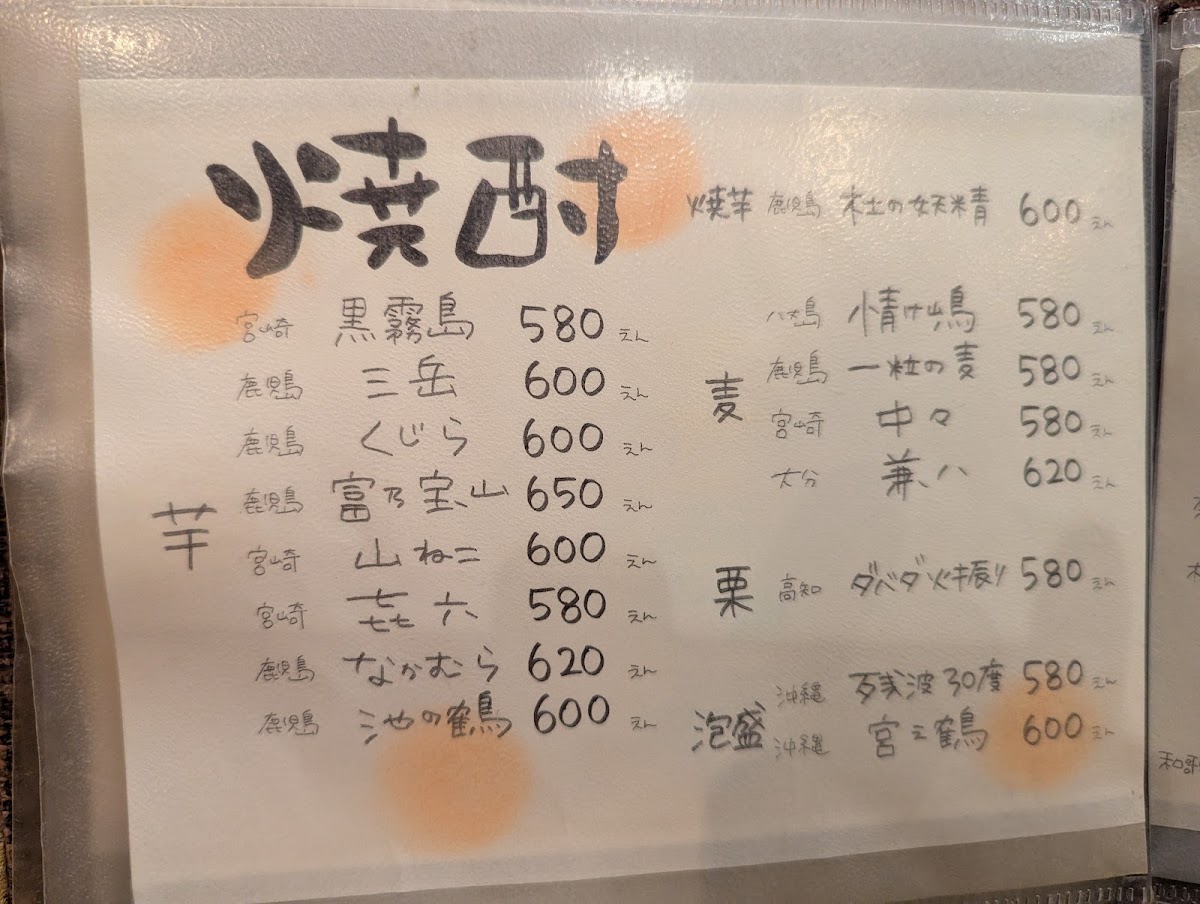 焼酎
芋
宮崎 黒霧島 580えん
鹿児島 三岳 600えん
鹿児島 くじら 600えん
鹿児島 富乃宝山 650えん
宮崎 山ねこ 600えん
宮崎 㐂六 580えん
鹿児島 なかむら 620えん
鹿児島 池の鶴 600えん
焼芋 鹿児島 杜の妖精 600えん
麦
八丈島 情け嶋 580えん
鹿児島 一粒の麦 580えん
宮崎 中々 580えん
大分 兼八 620えん
栗 高知 ダバダ火振り 580えん
泡盛
沖縄 残波30度 580えん
沖縄 宮之鶴 600えん